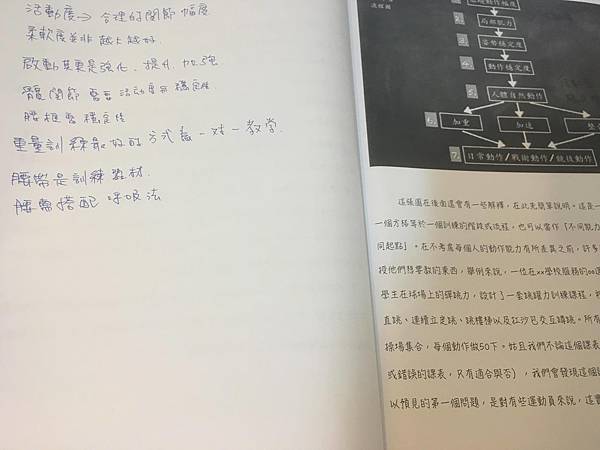 活動度→合理的關節幅度
柔軟度並非越大越好.
啟動其更是強化、提升、加強
髖關節需要活動度與穩定性
腰椎要穩定性
重量訓練最好的方式為一对一教学.
腰帶是訓練器材.
腰需搭配呼吸法
流程圖
動作幅度
2. 局部肌力
3. 姿勢穩定度
4. 動作穩定度
5. 人體自然動作
6. 加重 加速 整
7. 日常動作/戰術動作/競技動作
這張圖在後面還會有一些解釋,在此先簡單說明。這是一
一個方格等於一個訓練的階段或流程,也可以當作「不同能力
同起點」。在不考慮每個人的動作能力有所差異之前,許多
授他們想要教的東西,舉例來說,一位在xx學校服務的oo
學生在球場上的彈跳力,設計了一套跳躍力訓練課程,
直跳、連續立定跳、跳樓梯以及在沙已交互蹲跳。所有
操場集合,每個動作做50下。姑且我們不論這個課表
或錯誤的課表,只有適合與否),我們會發現這個
以預見的第一個問題,是對有些運動員來說,這